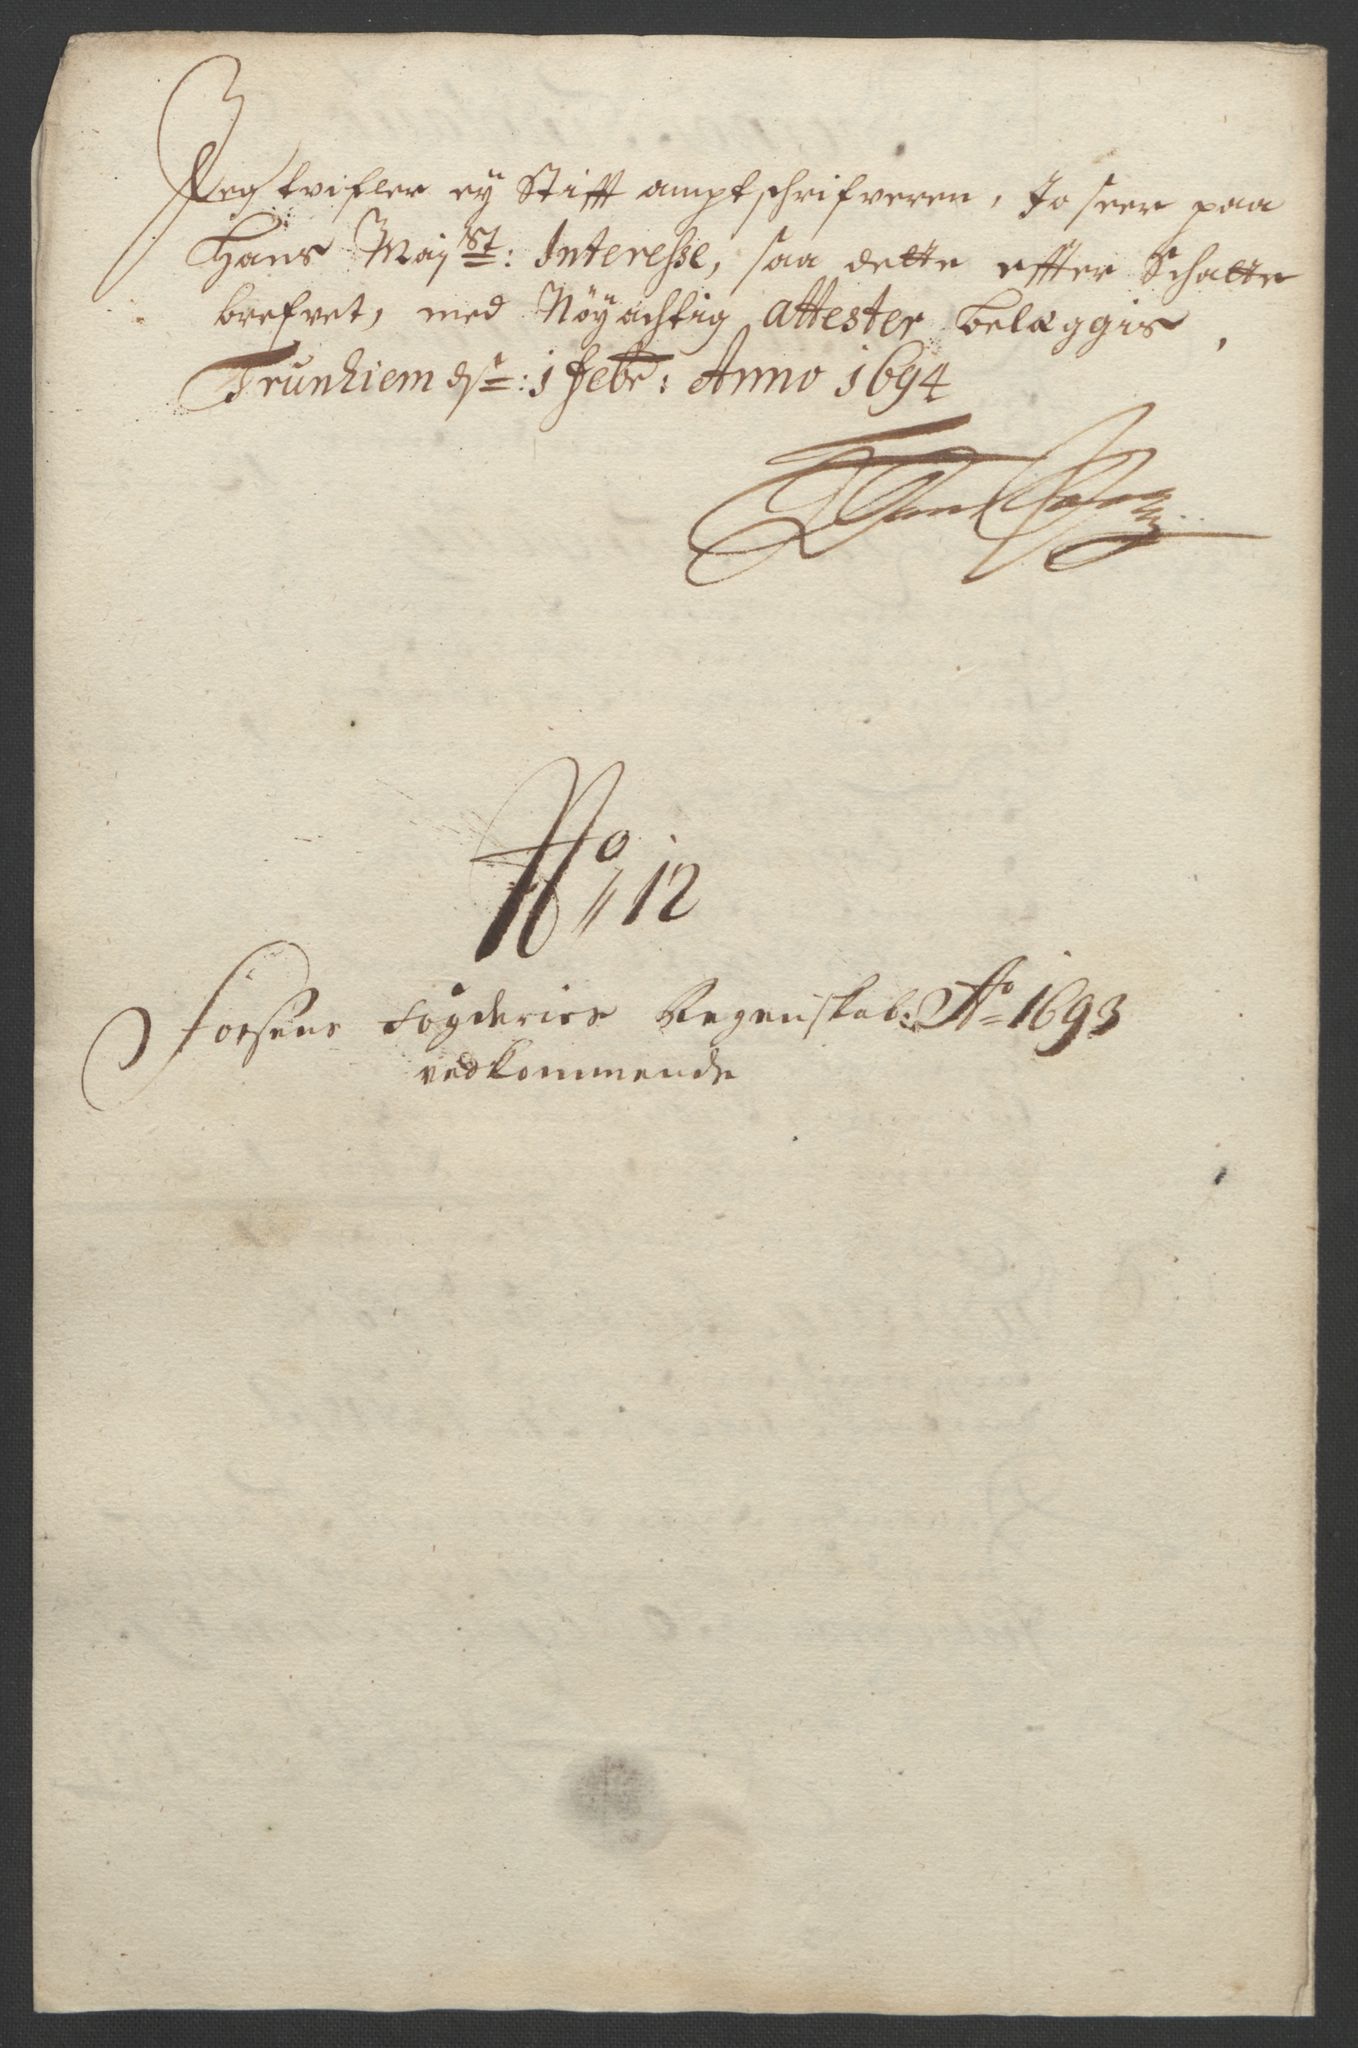 Jeg tvifler ey Stifft amptschrifveren, Jo seer paa
Hans Maj.st: Interesse, saa dette effter Schatte
brefvet, med Nöyachtig Attester belæggis,
Trunhiem dt: 1 Febr: Anno 1694
No 12
Fosens fögderies Regenskab Ao 1693
vedkommende